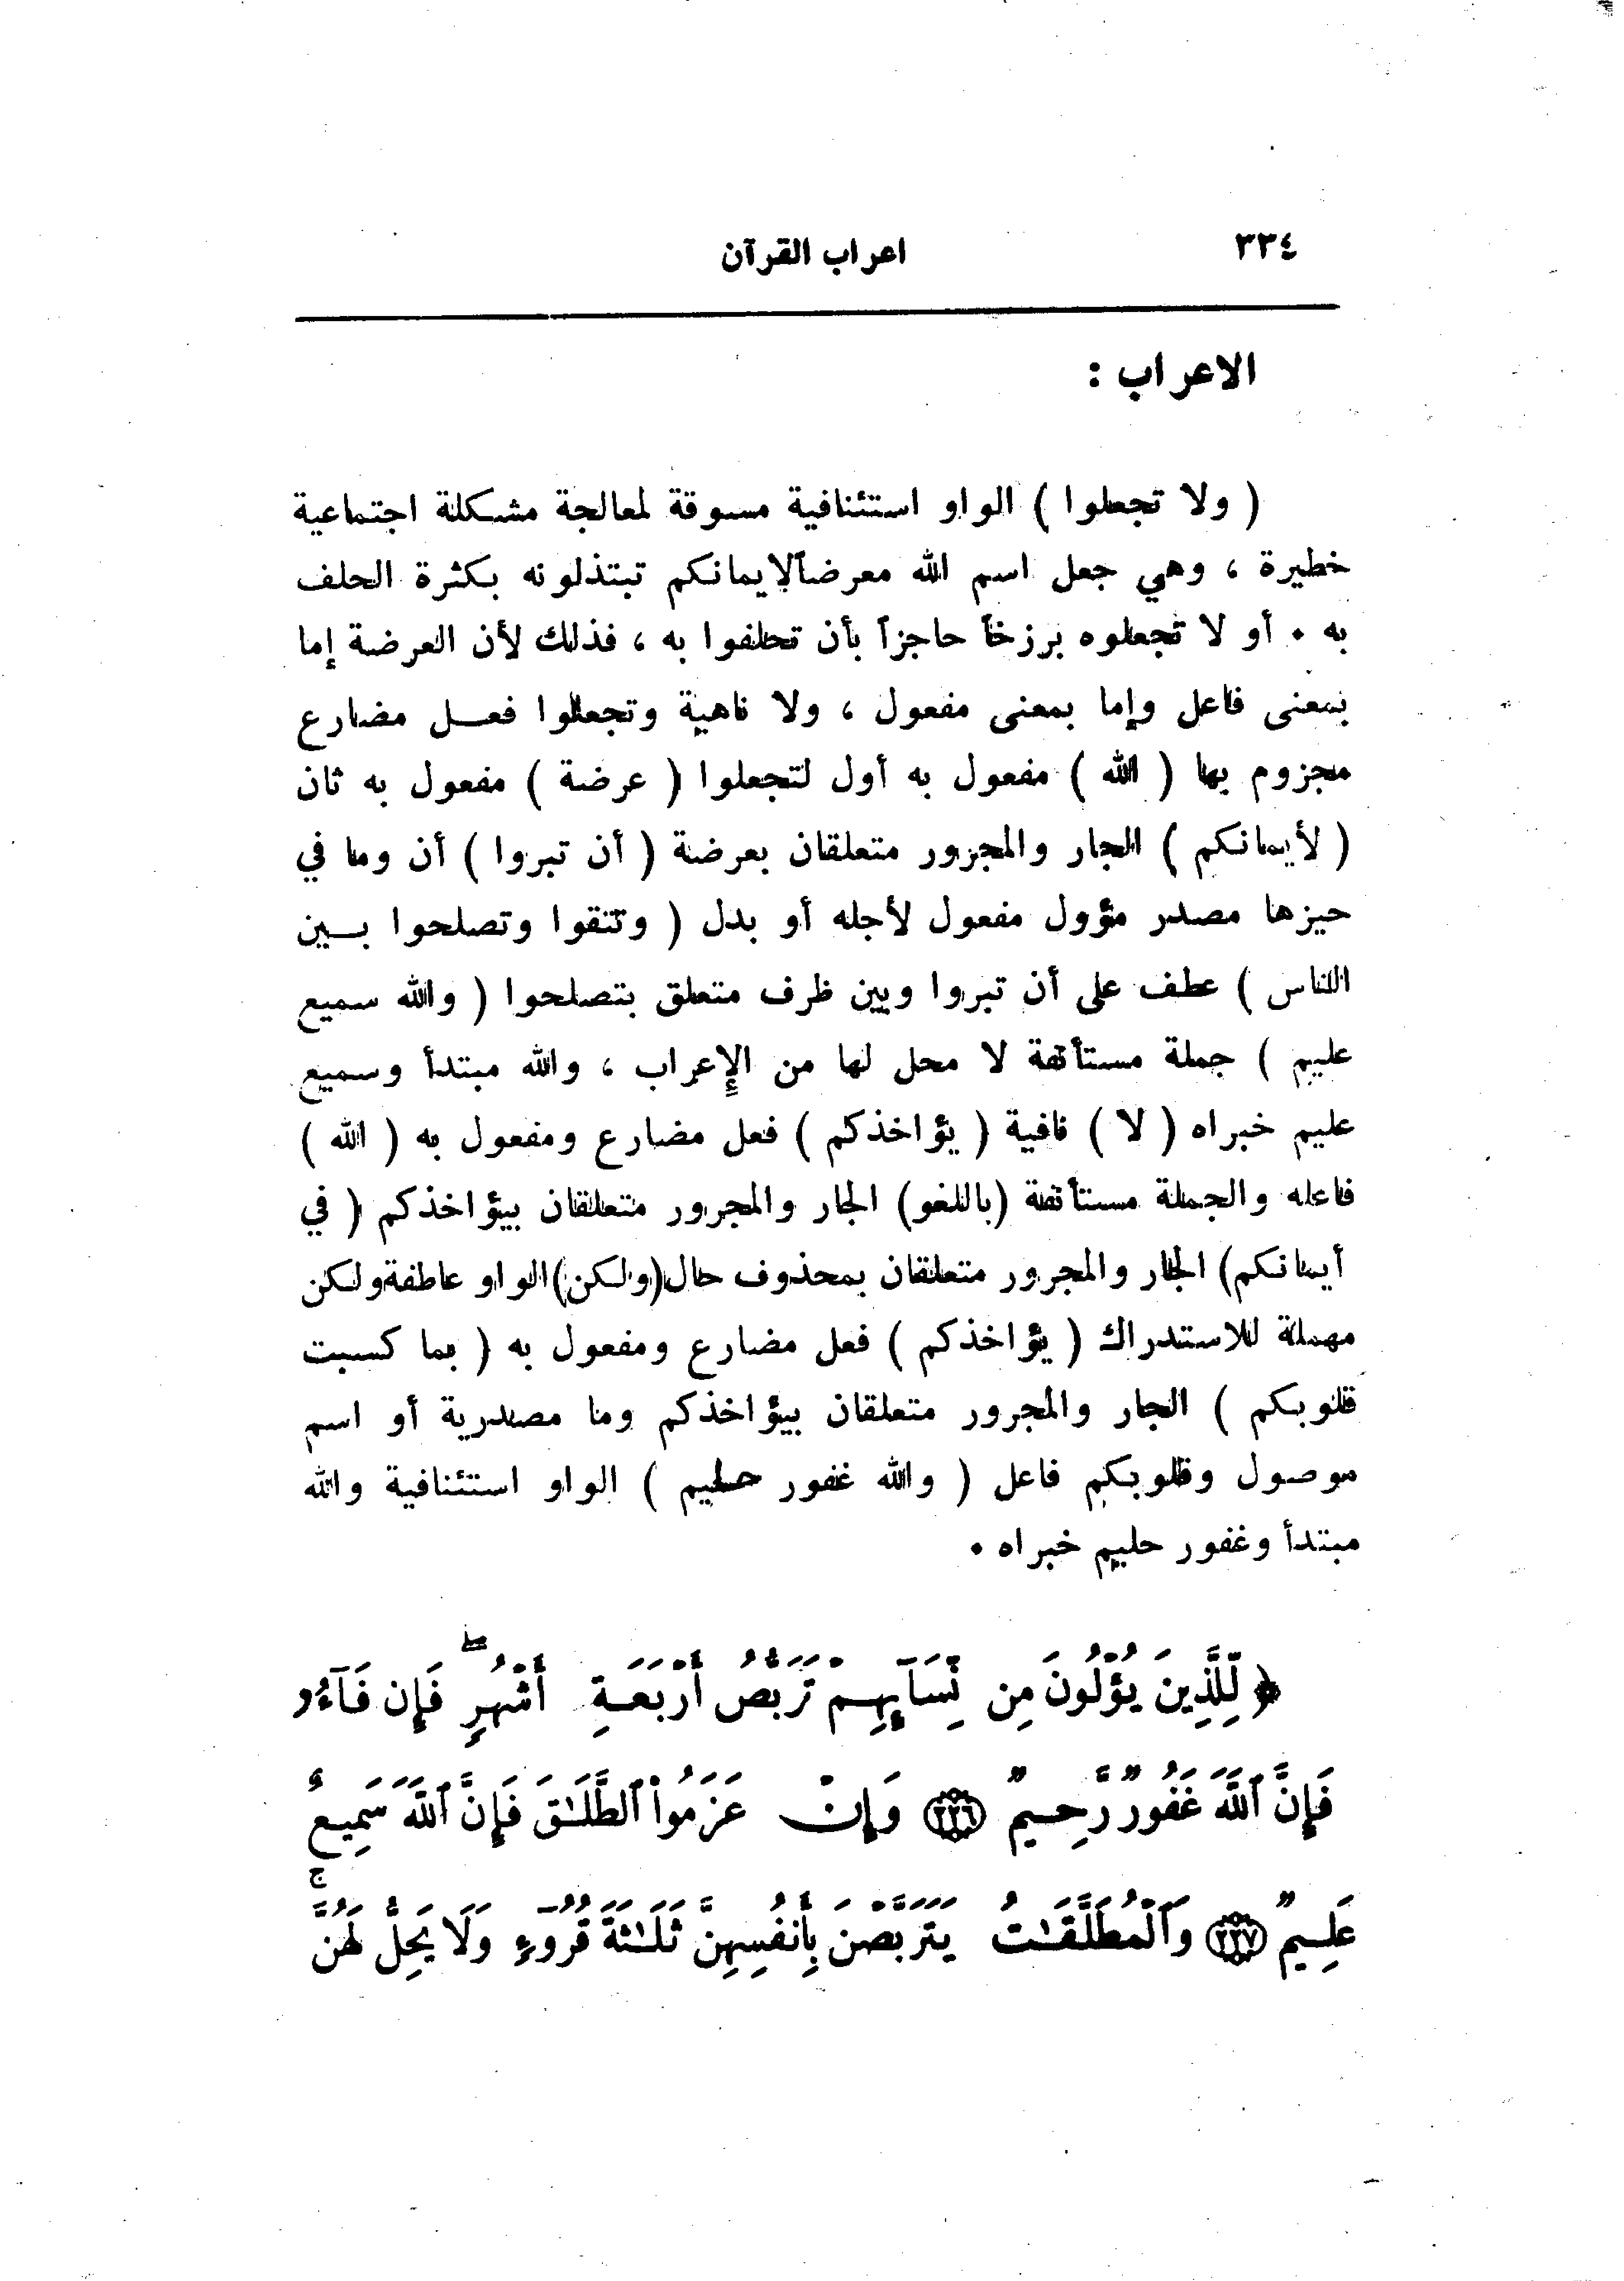 ٣٣٤
اعراب القرآن
الاعراب :
( ولا تجعلوا ) الواو استئنافية مسوقة لمعالجة مشكلة اجتماعية
خطيرة ، وهي جعل اسم الله معرضاً لايمانكم تبتذلونه بكثرة الحلف
به ٠ أو لا تجعلوه برزخاً حاجزاً بأن تحلفوا به ، فذلك لأن العرضة إما
بمعنى فاعل وإما بمعنى مفعول ، ولا ناهية وتجعلوا فعل مضارع
مجزوم بها ( الله ) مفعول به أول لتجعلوا ( عرضة ) مفعول به ثان
( لأيمانكم ) الجار والمجرور متعلقان بعرضة ( أن تبروا ) أن وما في
حيزها مصدر مؤول مفعول لأجله أو بدل ( وتتقوا وتصلحوا بين
الناس ) عطف على أن تبروا وبين ظرف متعلق بتصلحوا ( والله سميع
عليم ) جملة مستأنفة لا محل لها من الإعراب ، والله مبتدأ وسميع
عليم خبراه ( لا ) نافية ( يؤاخذكم ) فعل مضارع ومفعول به ( الله )
فاعله والجملة مستأنفة (باللغو) الجار والمجرور متعلقان بيؤاخذكم ( في
أيمانكم) الجار والمجرور متعلقان بمحذوف حال(ولكن)الواو عاطفةولكن
مهملة للاستدراك ( يؤاخذكم ) فعل مضارع ومفعول به ( بما كسبت
قلوبكم ) الجار والمجرور متعلقان بيؤاخذكم وما مصدرية أو اسم
موصول وقلوبكم فاعل ( والله غفور حليم ) الواو استئنافية والله
مبتدأ وغفور حليم خبراه ٠
﴿ لِّلَّذِينَ يُؤْلُونَ مِن نِّسَآئِهِمْ تَرَبُّصُ أَرْبَعَةِ أَشْهُرٍۖ فَإِن فَآءُو
فَإِنَّ ٱللَّهَ غَفُورٌ رَّحِيمٌ ﴿٢٢٦﴾ وَإِنْ عَزَمُواْ ٱلطَّلَٰقَ فَإِنَّ ٱللَّهَ سَمِيعٌ
عَلِيمٌ ﴿٢٢٧﴾ وَٱلْمُطَلَّقَٰتُ يَتَرَبَّصْنَ بِأَنفُسِهِنَّ ثَلَٰثَةَ قُرُوٓءٍۚ وَلَا يَحِلُّ لَهُنَّ